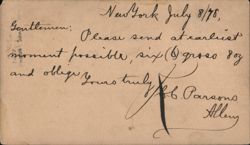 New York July 8/78,
Gentlemen:
Please send at earliest
moment possible, six (6) gross 8 oz
and oblige Yours truly
Parsons